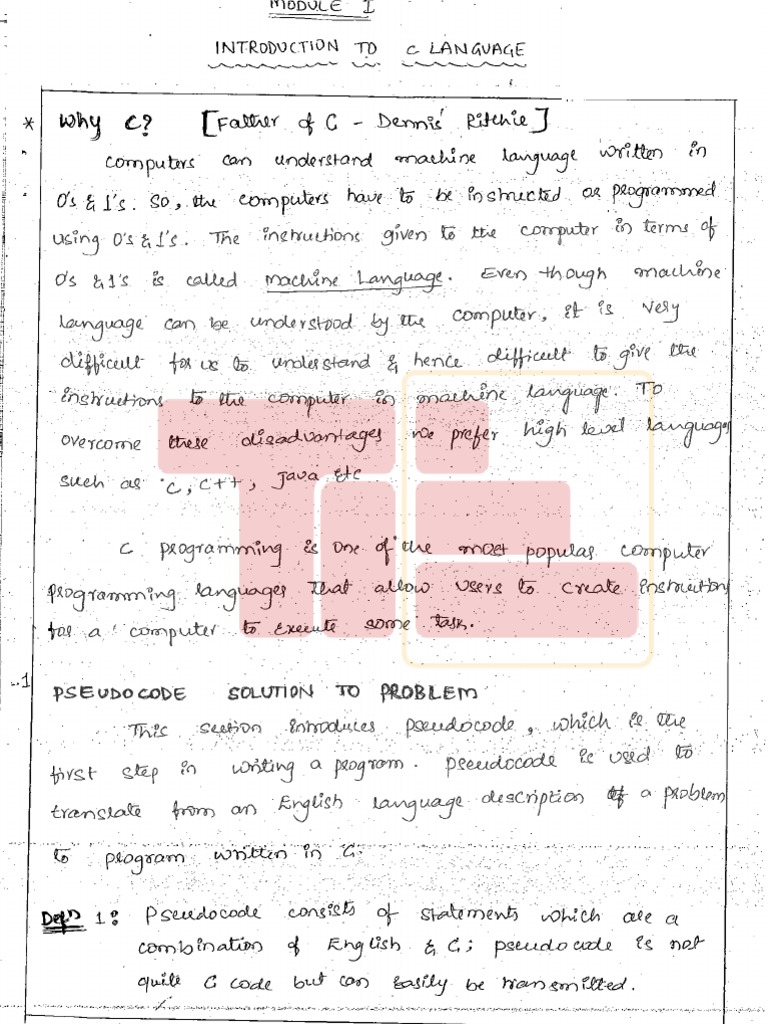 MODULE I
INTRODUCTION TO C LANGUAGE
* Why C? [Father of C - Dennis Ritchie]
Computers can understand machine language written in
0's & 1's. So, the computers have to be instructed or programmed
using 0's & 1's. The instructions given to the computer in terms of
0's & 1's is called machine Language. Even though machine
language can be understood by the computer, it is very
difficult for us to understand & hence difficult to give the
instructions to the computer in machine language. To
overcome these disadvantages we prefer high level languages
such as C, C++, Java etc
C programming is one of the most popular computer
programming languages that allow users to create instruction
for a computer to execute some task.
.1
PSEUDOCODE SOLUTION TO PROBLEM
This section introduces pseudocode, which is the
first step in writing a program. pseudocode is used to
translate from an English language description of a problem
to program written in C.
Defn 1: Pseudocode consists of statements which are a
combination of English & C; pseudocode is not
quite C code but can easily be transmitted.